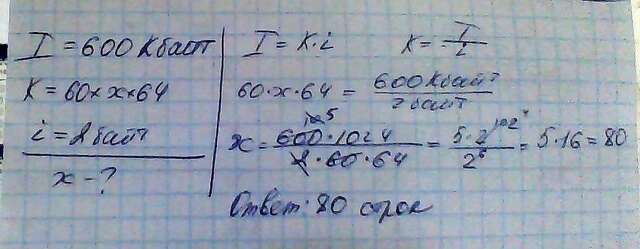 I = 600 Кбайт
K = 60 × x × 64
i = 2 байт
x - ?
I = K · i    K = I / i
60 · x · 64 = 600 Кбайт / 2 байт
x = 600 · 1024 / 2 · 60 · 64 = 5 · 2¹⁰ / 2⁶ = 5 · 16 = 80
Ответ: 80 строк